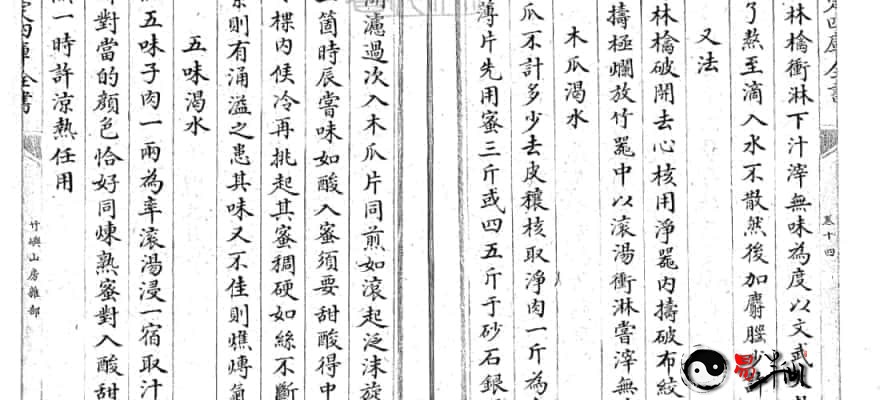 四庫全書
卷十四
林檎衝淋下汁滓無味為度以文武
了熬至滴入水不散然後加麝腦少
又法
林檎破開去心核用淨器内擣破布絞
擣極爛放竹器中以滚湯衝淋嘗滓無
木瓜渴水
瓜不計多少去皮穰核取淨肉一斤為
薄片先用蜜三斤或四五斤于砂石銀
濾過次入木瓜片同煎如滚起泛沫旋
箇時辰嘗味如酸入蜜須要甜酸得中
棵内候冷再挑起其蜜稠硬如絲不斷
則有涌溢之患其味又不佳則燋煿氣
五味渴水
五味子肉一兩為率滚湯浸一宿取汁
對當的顔色恰好同煉熟蜜對入酸甜
一時許涼熱任用
四庫全書
竹嶼山房雜部